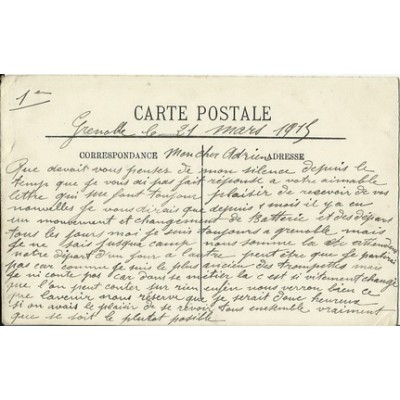 1er
CARTE POSTALE
Grenoble le 21 mars 1915
CORRESPONDANCE Mon cher Adrien ADRESSE
Que devait vous penser de mon silence depuis le
temps que je vous ai pas fait réponse a votre aimable
lettre qui me font toujour plaisir de resevoir de vos
nouvelles je vous dirais que depuis 1 mois il y a eu
un mouvement et changement de Batterie et des départ
tous les jours moi je suis toujours a grenoble mais
je ne sais jusqua camp nous somme la
notre départ d'un jour a l'autre peut être que je partirai
pas car comme je suis le plus ancien des trompettes mais
je ni conte pas car dans se métier la c'est si vitement changé
que l'on peut conter sur rien enfin nous verron bien ce
que lavenir nous réserve que je serait donc heureux
si on avais le plaisir de se revoir tous ensemble vraiment
que se soit le plutot posible